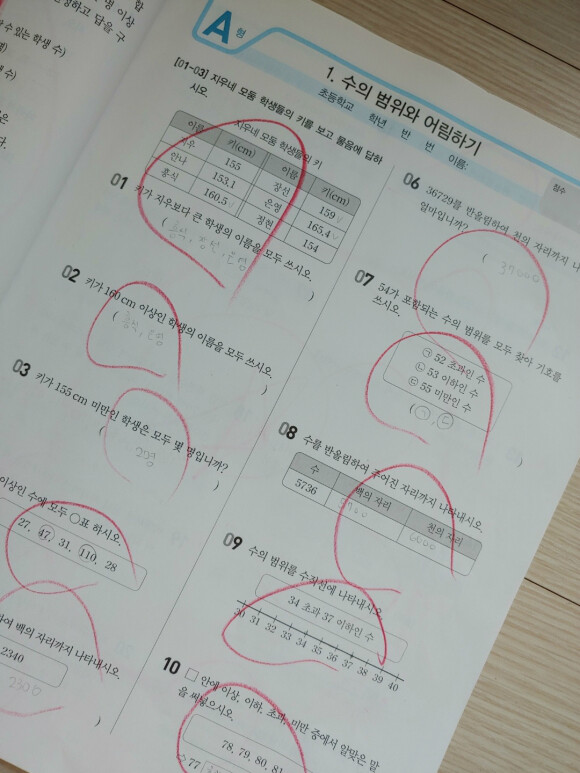 A형
1. 수의 범위와 어림하기
초등학교 학년 반 번 이름:
점수
[01~03] 지우네 모둠 학생들의 키를 보고 물음에 답하
시오.
지우네 모둠 학생들의 키
이름 키(cm) 이름 키(cm)
지우 155 장선 159
안나 153.1 은영 165.4
홍식 160.5 정현 154
01 키가 지우보다 큰 학생의 이름을 모두 쓰시오.
( 홍식, 장선, 은영 )
02 키가 160 cm 이상인 학생의 이름을 모두 쓰시오.
( 홍식, 은영 )
03 키가 155 cm 미만인 학생은 모두 몇 명입니까?
( 2명 )
이상인 수에 모두 ○표 하시오.
27, 47, 31, 110, 28
하여 백의 자리까지 나타내시오.
2340
2300
)
06 36729를 반올림하여 천의 자리까지 나
얼마입니까?
( 37000
07 54가 포함되는 수의 범위를 모두 찾아 기호를
쓰시오.
㉠ 52 초과인 수
㉡ 53 이하인 수
㉢ 55 미만인 수
( ㉠, ㉢ )
08 수를 반올림하여 주어진 자리까지 나타내시오.
수 백의 자리 천의 자리
5736 5700 6000
09 수의 범위를 수직선에 나타내시오.
34 초과 37 이하인 수
30 31 32 33 34 35 36 37 38 39 40
10 □ 안에 이상, 이하, 초과, 미만 중에서 알맞은 말
을 써넣으시오.
78, 79, 80, 81
77
수 있는 학생 수)
수)